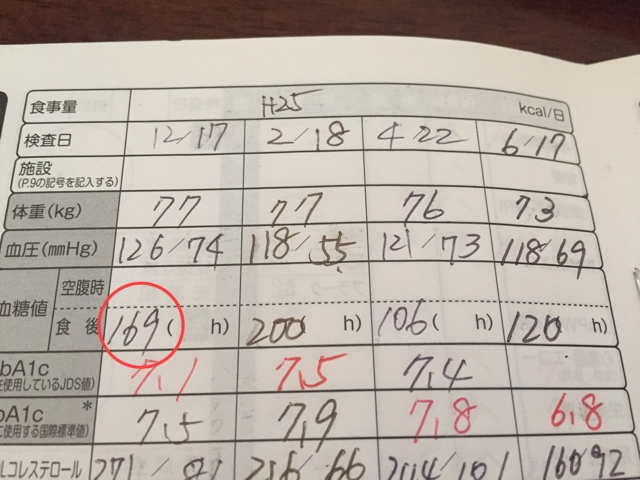 食事量 H25 kcal/日
検査日 12/17 2/18 4 22 6/17
施設
(P.9の記号を記入する)
体重(kg) 77 77 76 73
血圧(mmHg) 126/74 118/55 121/73 118/69
血糖値 空腹時
食後 169( h) 200 h) 106( h) 120 h)
bA1c 7,1 7,5 7,4
使用しているJDS値)
bA1c * 7,5 7,9 7,8 6,8
使用する国際標準値)
Lコレステロール